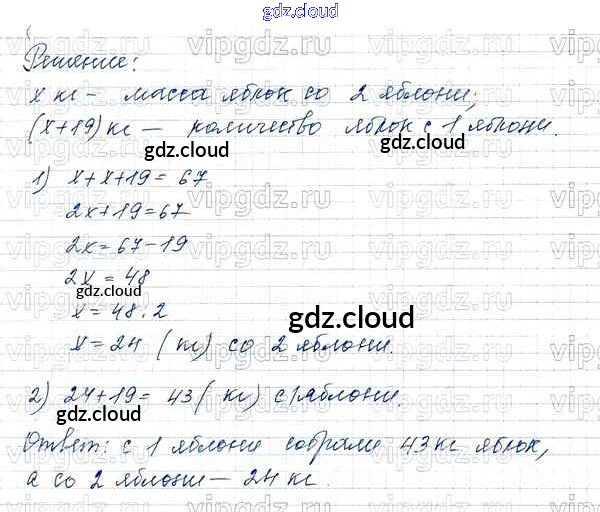 gdz.cloud
Решение:
x кг – масса яблок со 2 яблони;
(x+19) кг – количество яблок с 1 яблони.
gdz.cloud
1) x+x+19=67
gdz.cloud
2x+19=67
2x=67-19
2x=48
gdz.cloud
x=48:2
gdz.cloud
x=24 (кг) со 2 яблони.
2) 24+19=43 (кг) с 1 яблони.
gdz.cloud
gdz.cloud
Ответ: с 1 яблони собрали 43 кг яблок,
а со 2 яблони – 24 кг.
gdz.cloud
vipgdz.ru